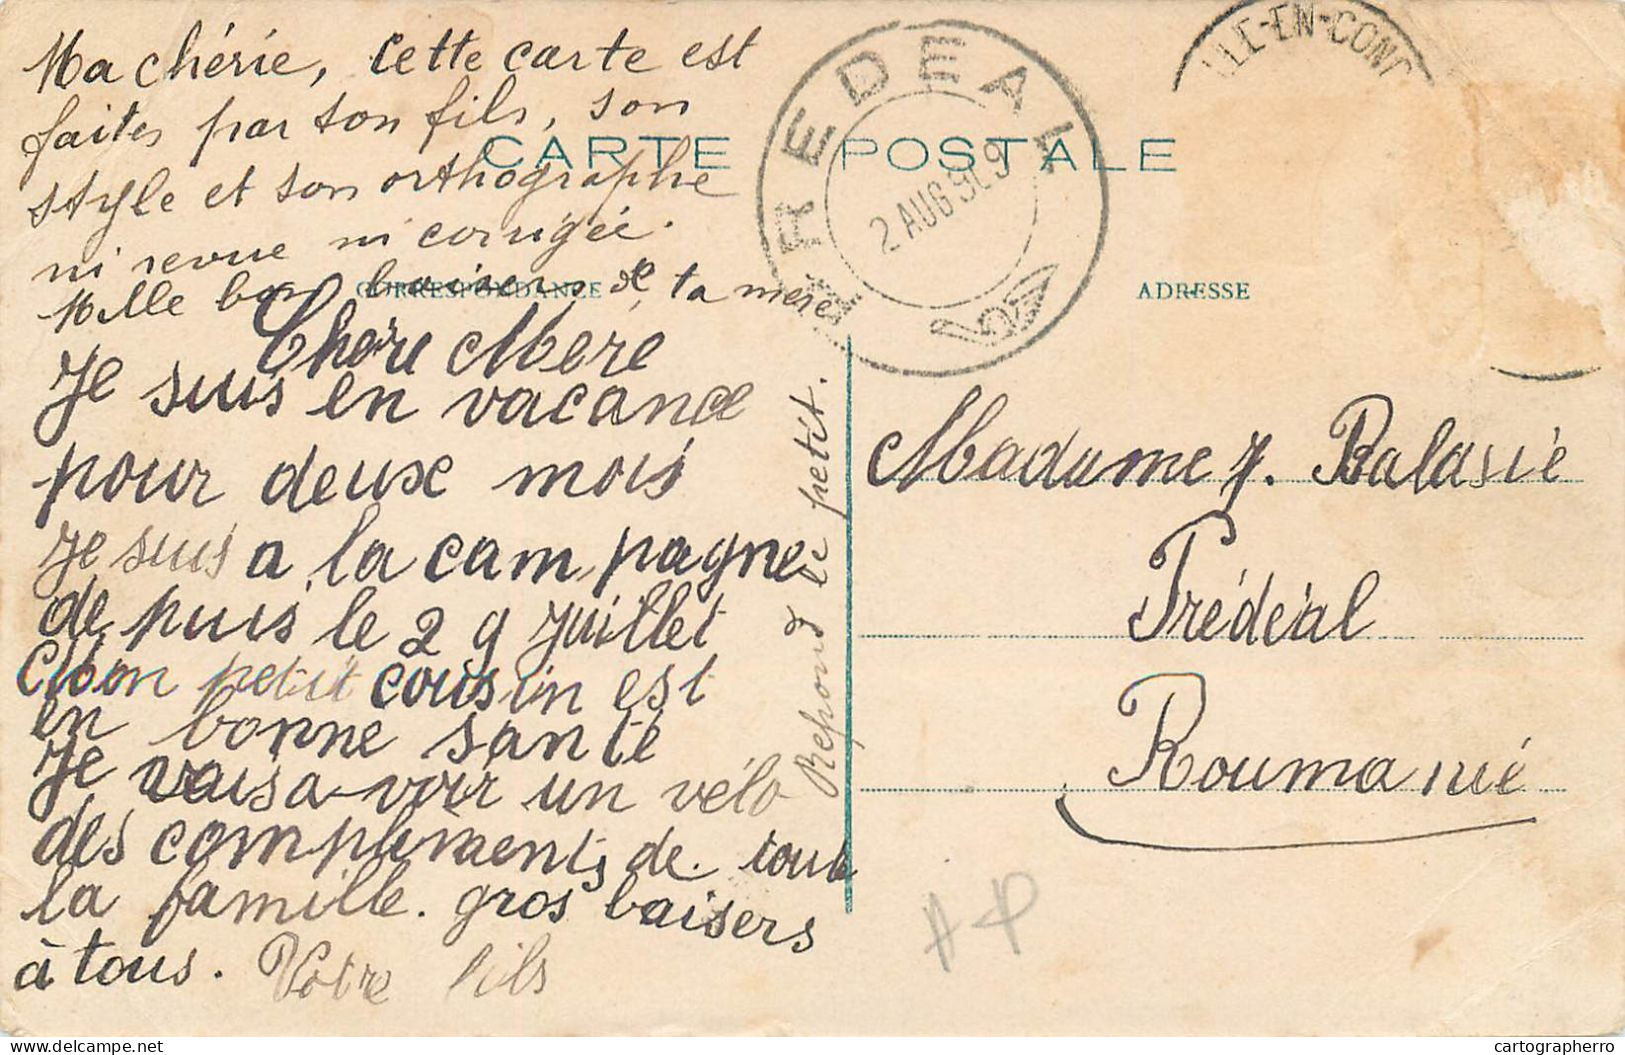 Ma chérie, Cette carte est
faites par ton fils, son
style et son orthographe
ni revue ni corrigée.
Mille bon baisers de ta mere
CARTE POSTALE
CORRESPONDANCE
ADRESSE
PREDEAL
2 AUG 909
LLE-EN-CON
Chere Mere
Je suis en vacance
pour deux mois
Je suis a la campagne
depuis le 29 Juillet
Mon petit cousin est
en bonne santé
Je vais avoir un vélo
des compliments de toute
la famille. gros baisers
à tous. Votre fils
Repond le petit.
Madame J. Balasie
Prédéal
Roumanié
cartographerro